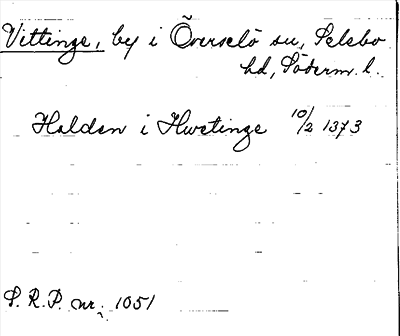 Vittinge, by i Överselö sn, Selebo
hd, Söderm. l.
Haldan i Hwetinge 10/2 1373
S. R. P. nr. 1051